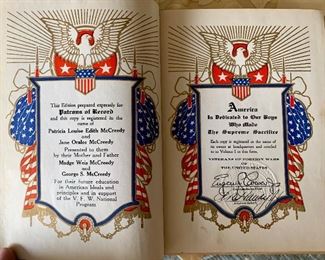 This Edition prepared expressly for
Patrons of Record
and this copy is registered in the
name of
Patricia Louise Edith McCreedy
and
Jane Oralee McCreedy
Presented to them
by their Mother and Father
Madge Weis McCreedy
and
George S. McCreedy
For their future education
in American Ideals and
principles and in support
of the V. F. W. National
Program
America
is Dedicated to Our Boys
Who Made
The Supreme Sacrifice
Each copy is registered in the name of
its owner at headquarters and recorded
in Volume I in this form.
VETERANS OF FOREIGN WARS
OF
THE UNITED STATES